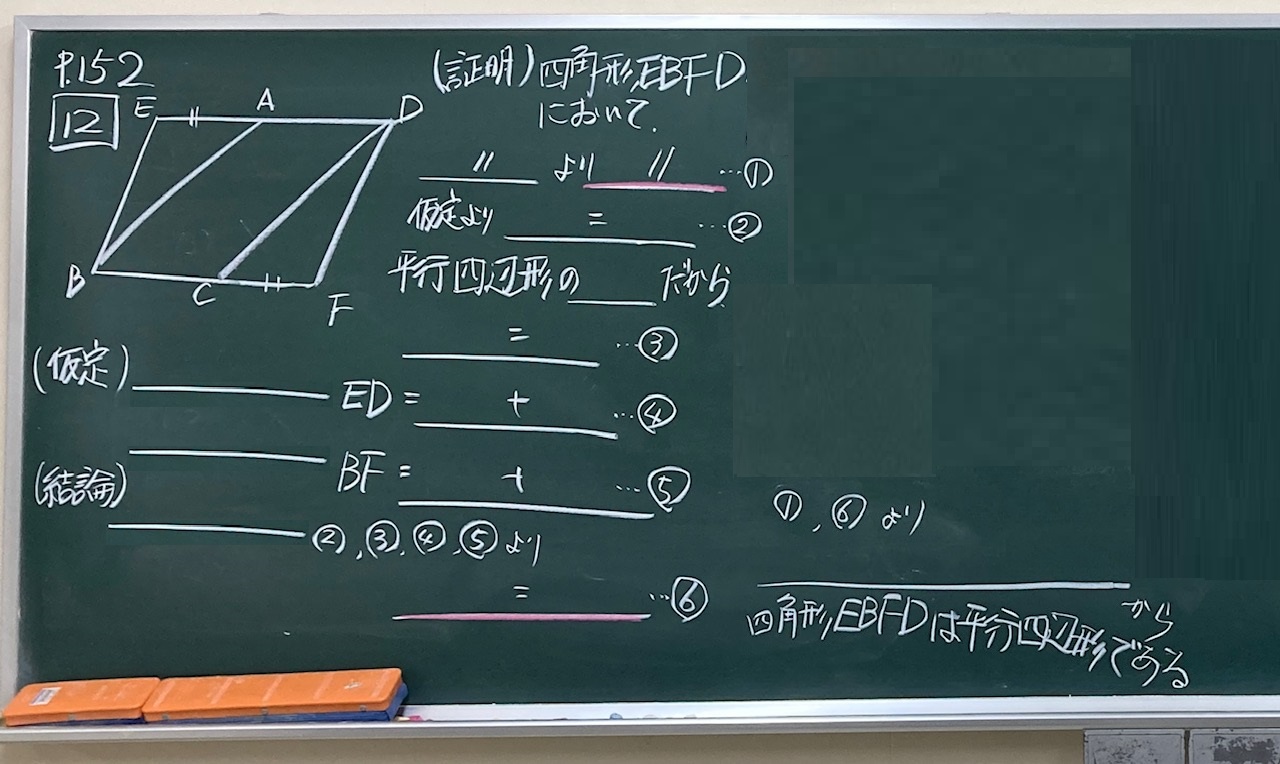 P.152
12
E A D
B C F
(仮定)
(結論)
(証明)四角形EBFD
において、
// より // …①
仮定より = …②
平行四辺形の だから
= …③
ED= + …④
BF= + …⑤
②,③,④,⑤より
= …⑥
①,⑥より
から
四角形EBFDは平行四辺形である